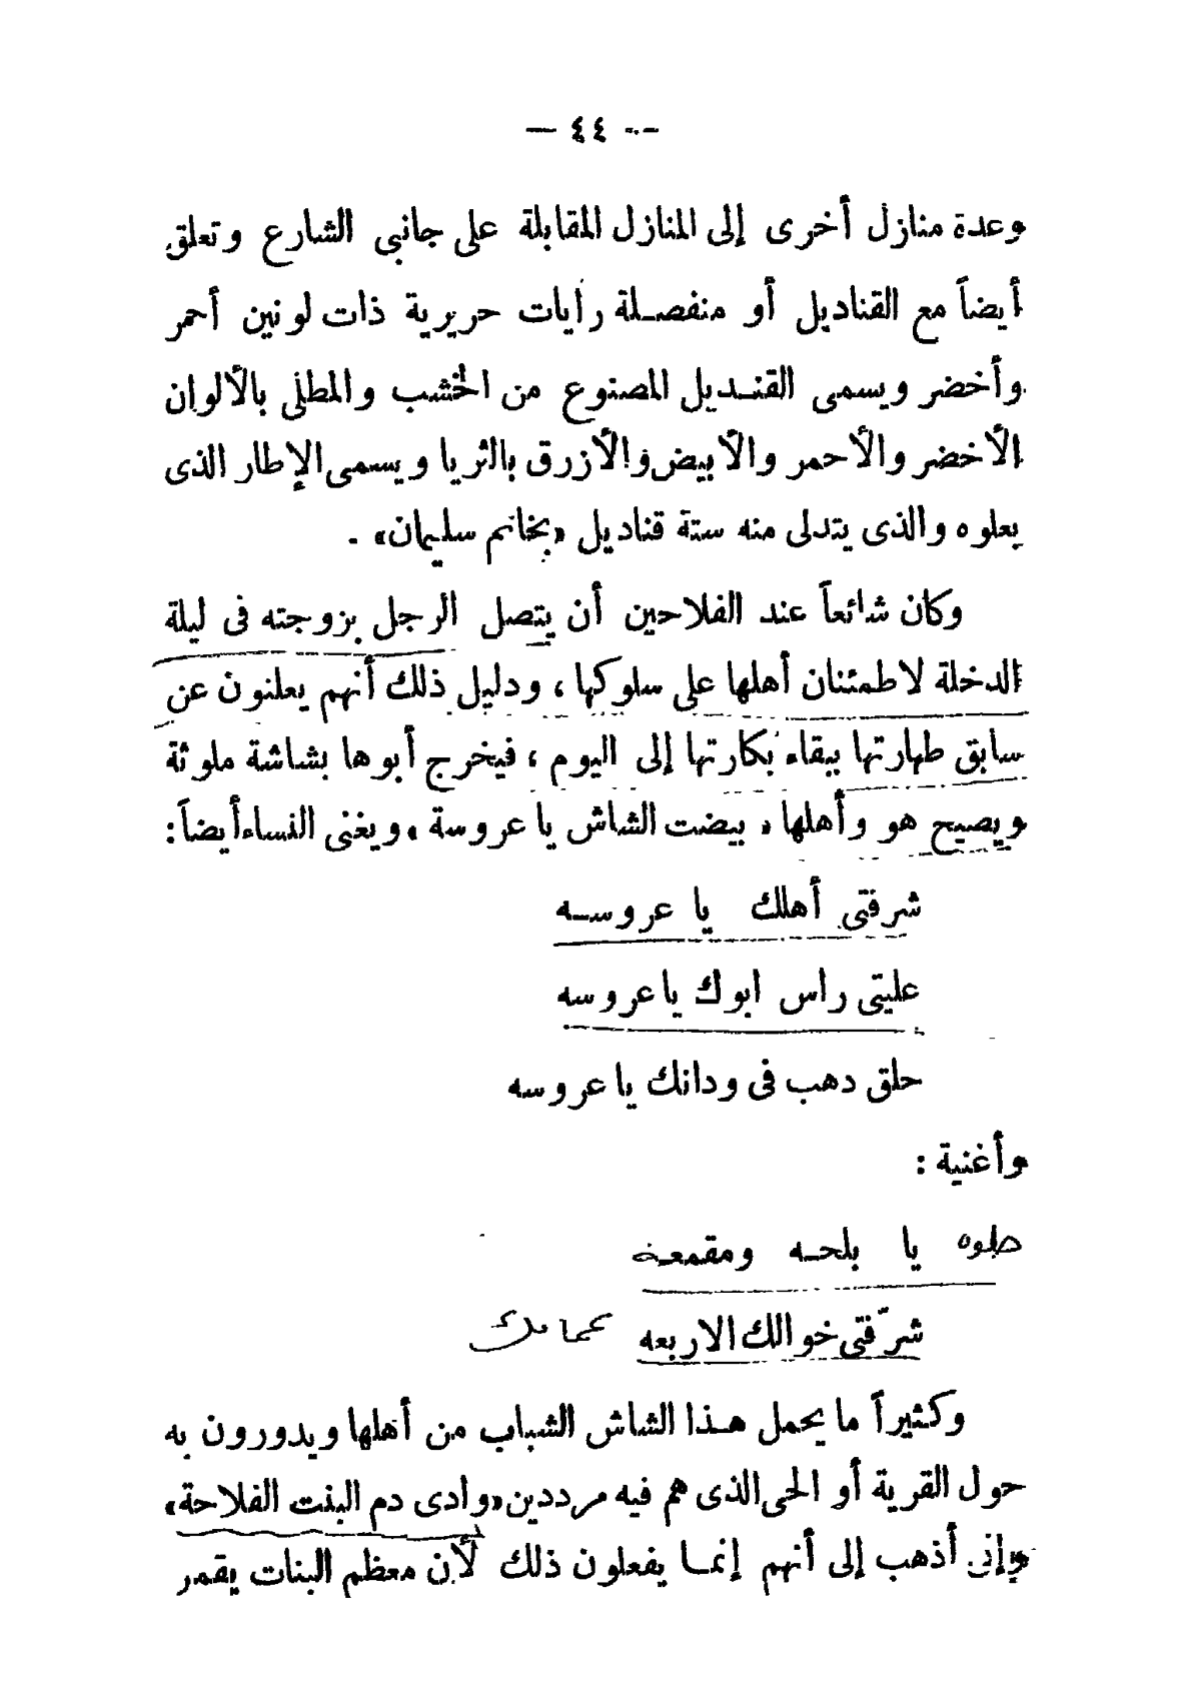 — ٤٤ —
وعدة منازل أخرى إلى المنازل المقابلة على جانبى الشارع وتعلق
أيضاً مع القناديل أو منفصلة رايات حريرية ذات لونين أحمر
وأخضر ويسمى القنديل المصنوع من الخشب والمطلى بالألوان
الأخضر والأحمر والأبيض والأزرق بالثريا ويسمى الإطار الذى
يعلوه والذى يتدلى منه ستة قناديل «بخاتم سليمان» .
وكان شائعاً عند الفلاحين أن يتصل الرجل بزوجته فى ليلة
الدخلة لاطمئنان أهلها على سلوكها ، ودليل ذلك أنهم يعلنون عن
سابق طهارتها ببقاء بكارتها إلى اليوم ، فيخرج أبوها بشاشة ملوثة
ويصيح هو وأهلها « بيضت الشاش يا عروسة » ويغنى النساء أيضاً :
شرفتى أهلك يا عروسه
عليتى راس ابوك يا عروسه
حلق دهب فى ودانك يا عروسه
وأغنية :
حلوه يا بلحه ومقمعه
شرّفتى خوالك الاربعه
وكثيراً ما يحمل هذا الشاش الشباب من أهلها ويدورون به
حول القرية أو الحى الذى هم فيه مرددين «وادى دم البنت الفلاحة»
وإنى أذهب إلى أنهم إنما يفعلون ذلك لأن معظم البنات يقمر